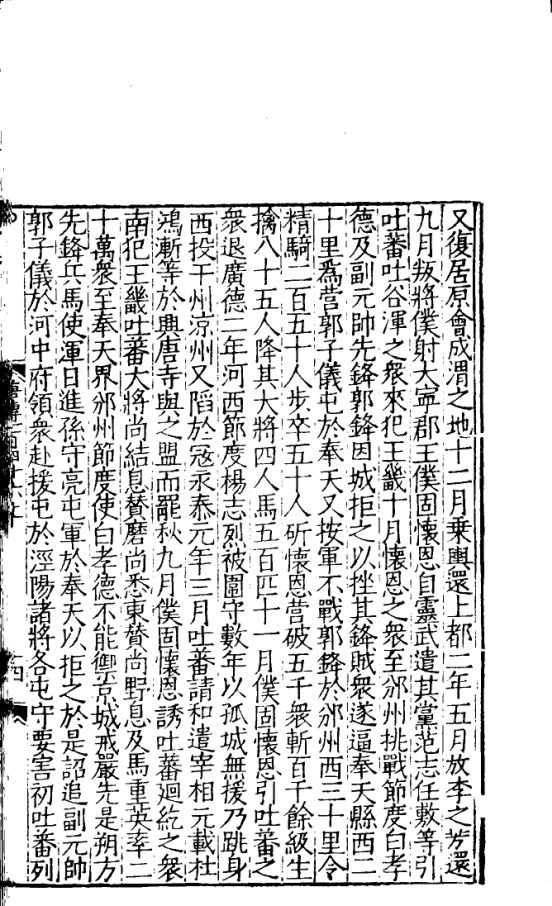 又復居原會成渭之地十二月乗輿還上都二年五月放李之芳還
九月叛將僕射大寧郡王僕固懷恩自靈武遣其黨范志任敷等引
吐蕃吐谷渾之衆來犯王畿十月懷恩之衆至邠州挑戰節度白孝
德及副元帥先鋒郭鋒因城拒之以挫其鋒賊衆遂逼奉天縣西二
十里爲營郭子儀屯於奉天又按軍不戰郭鋒於邠州西三十里令
精騎二百五十人步卒五十人斫懷恩營破五千衆斬百千餘級生
擒八十五人降其大將四人馬五百匹十一月僕固懷恩引吐蕃之
衆退廣德二年河西節度楊志烈被圍守數年以孤城無援乃跳身
西投干州凉州又䧟於寇永泰元年三月吐蕃請和遣宰相元載杜
鴻漸等於興唐寺與之盟而罷秋九月僕固懷恩誘吐蕃迴紇之衆
南犯王畿吐蕃大將尚結息賛磨尚悉東賛尚野息及馬重英率二
十萬衆至奉天界邠州節度使白孝德不能禦京城戒嚴先是朔方
先鋒兵馬使渾日進孫守亮屯軍於奉天以拒之於是詔追副元帥
郭子儀於河中府領衆赴援屯於涇陽諸將各屯守要害初吐蕃列